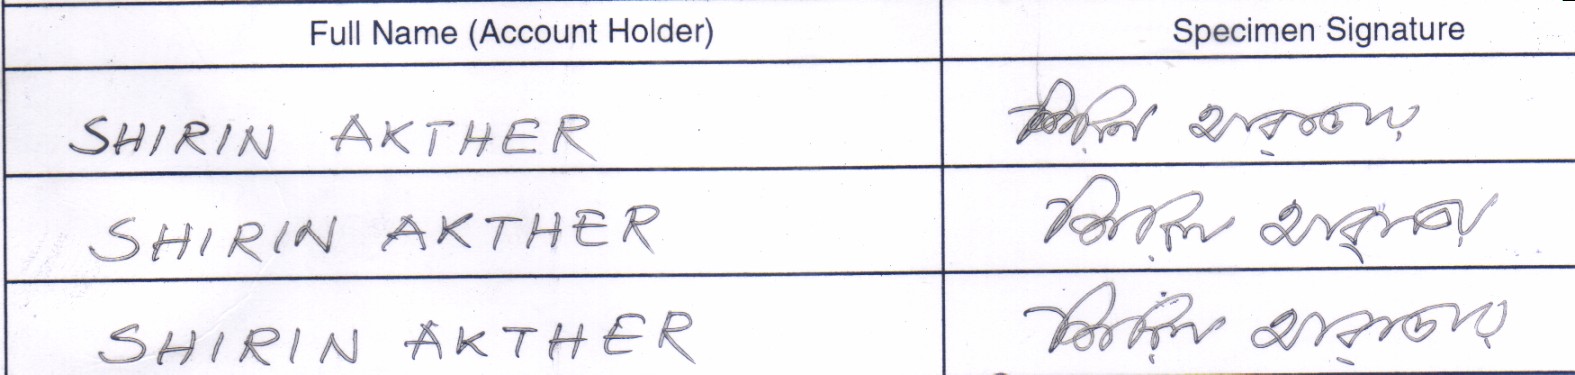 Full Name (Account Holder) Specimen Signature
SHIRIN AKTHER শিরিন আকতার
SHIRIN AKTHER শিরিন আকতার
SHIRIN AKTHER শিরিন আকতার